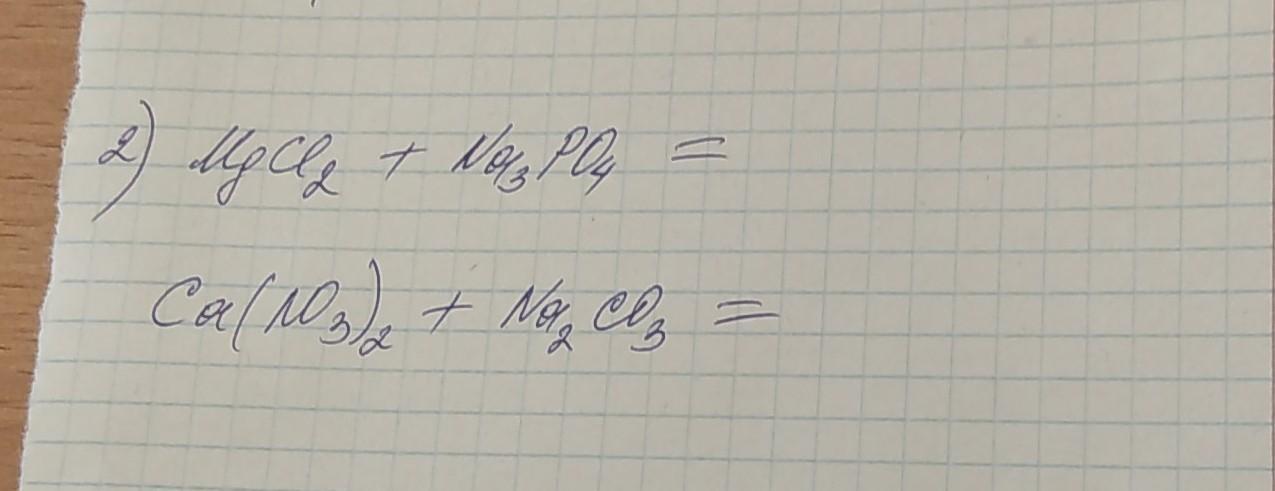 2) MgCl₂ + Na₃PO₄ =
Ca(NO₃)₂ + Na₂CO₃ =